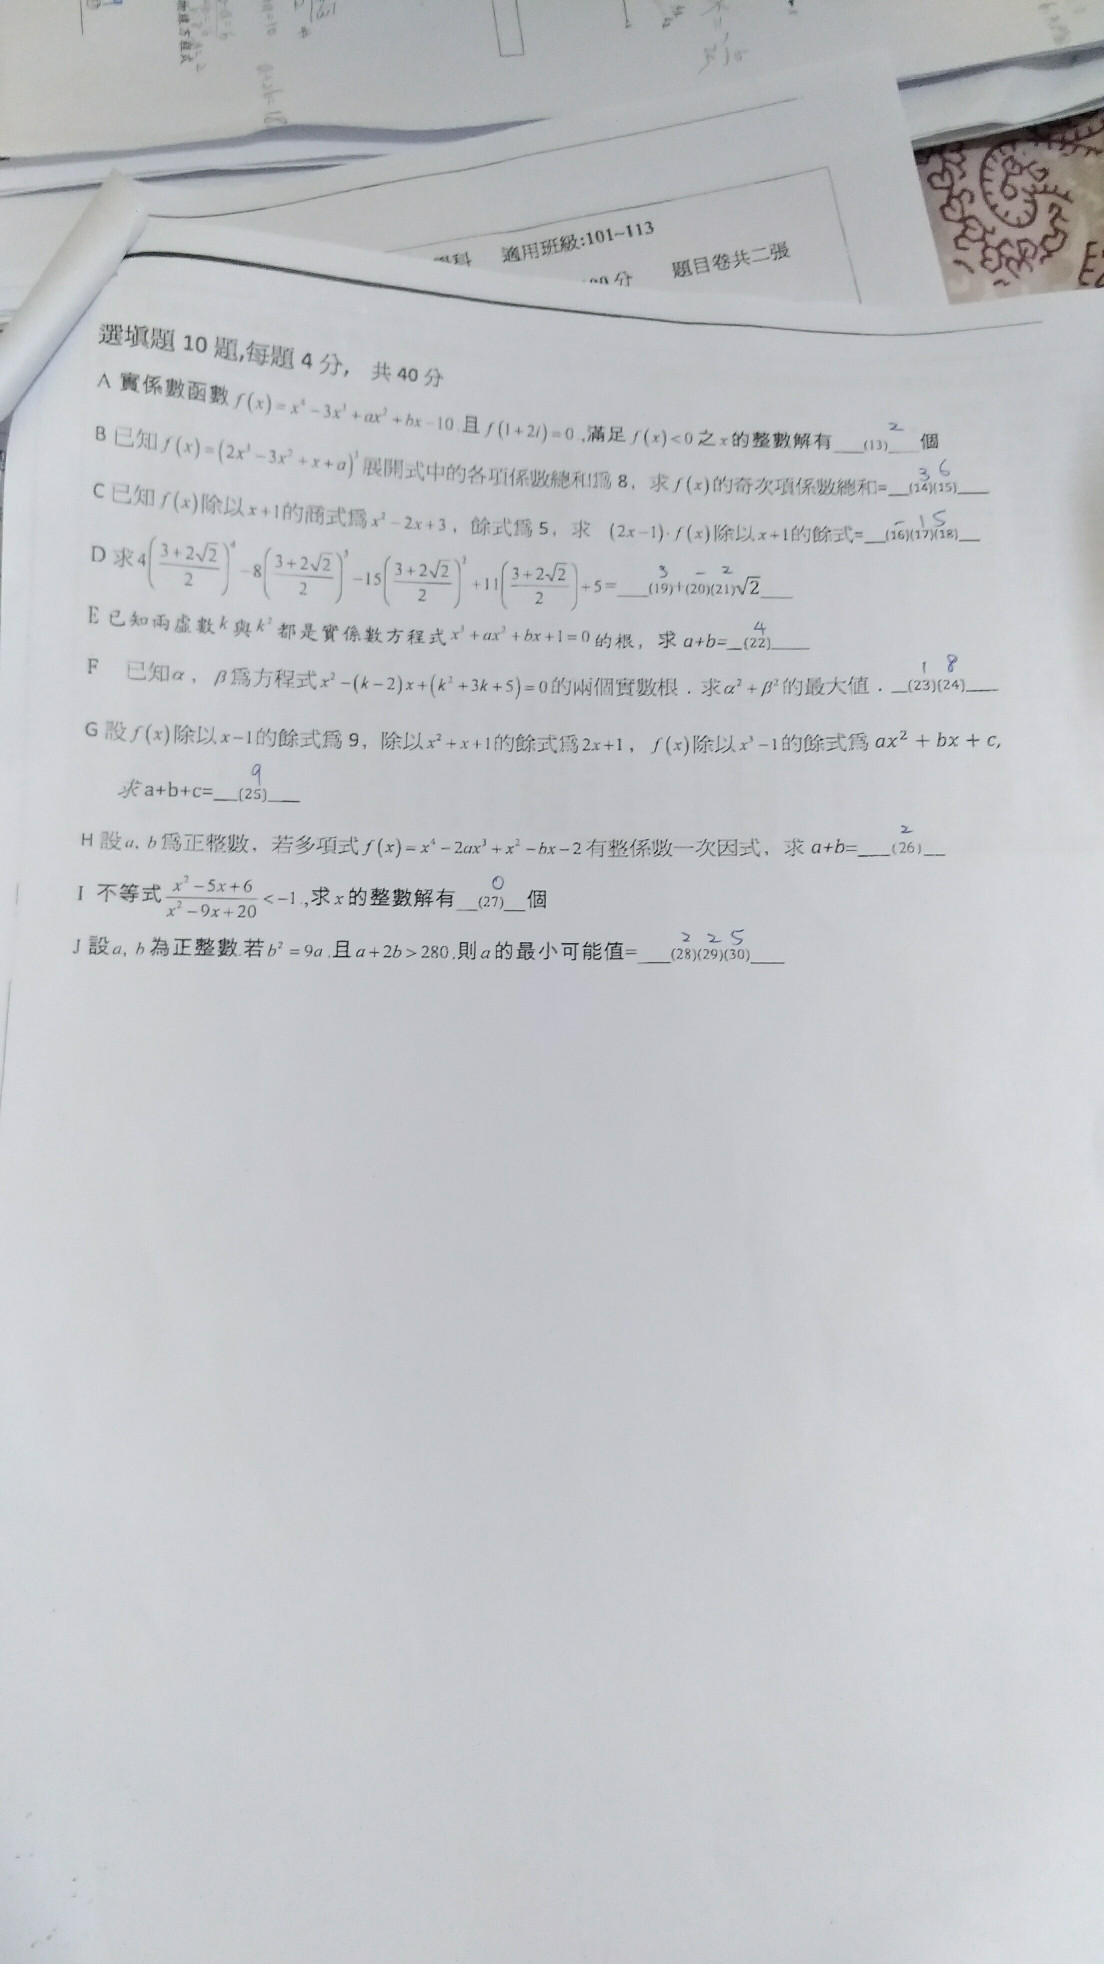 適用班級:101~113
題目卷共二張
選填題 10 題,每題 4 分, 共 40 分
A 實係數函數 f(x)=x⁴-3x³+ax²+bx-10.且 f(1+2i)=0 ,滿足 f(x)<0 之 x 的整數解有 2 (13) 個
B 已知 f(x)=(2x³-3x²+x+a)³ 展開式中的各項係數總和爲 8，求 f(x) 的奇次項係數總和= 36 (14)(15)
C 已知 f(x) 除以 x+1 的商式爲 x²-2x+3，餘式爲 5，求 (2x-1)·f(x) 除以 x+1 的餘式= -15 (16)(17)(18)
D 求 4((3+2√2)/2)⁴-8((3+2√2)/2)³-15((3+2√2)/2)²+11((3+2√2)/2)+5= 3 - 2 (19)+(20)(21)√2
E 已知兩虛數 k 與 k² 都是實係數方程式 x³+ax²+bx+1=0 的根，求 a+b= 4 (22)
F 已知 α，β 爲方程式 x²-(k-2)x+(k²+3k+5)=0 的兩個實數根．求 α²+β² 的最大値． 18 (23)(24)
G 設 f(x) 除以 x-1 的餘式爲 9，除以 x²+x+1 的餘式爲 2x+1，f(x) 除以 x³-1 的餘式爲 ax² + bx + c,
求 a+b+c= 9 (25)
H 設 a, b 爲正整數，若多項式 f(x)=x⁴-2ax³+x²-bx-2 有整係數一次因式，求 a+b= 2 (26)
I 不等式 (x²-5x+6)/(x²-9x+20) <-1 .,求 x 的整數解有 0 (27) 個
J 設 a, b 為正整數.若 b²=9a .且 a+2b>280 .則 a 的最小可能值= 225 (28)(29)(30)